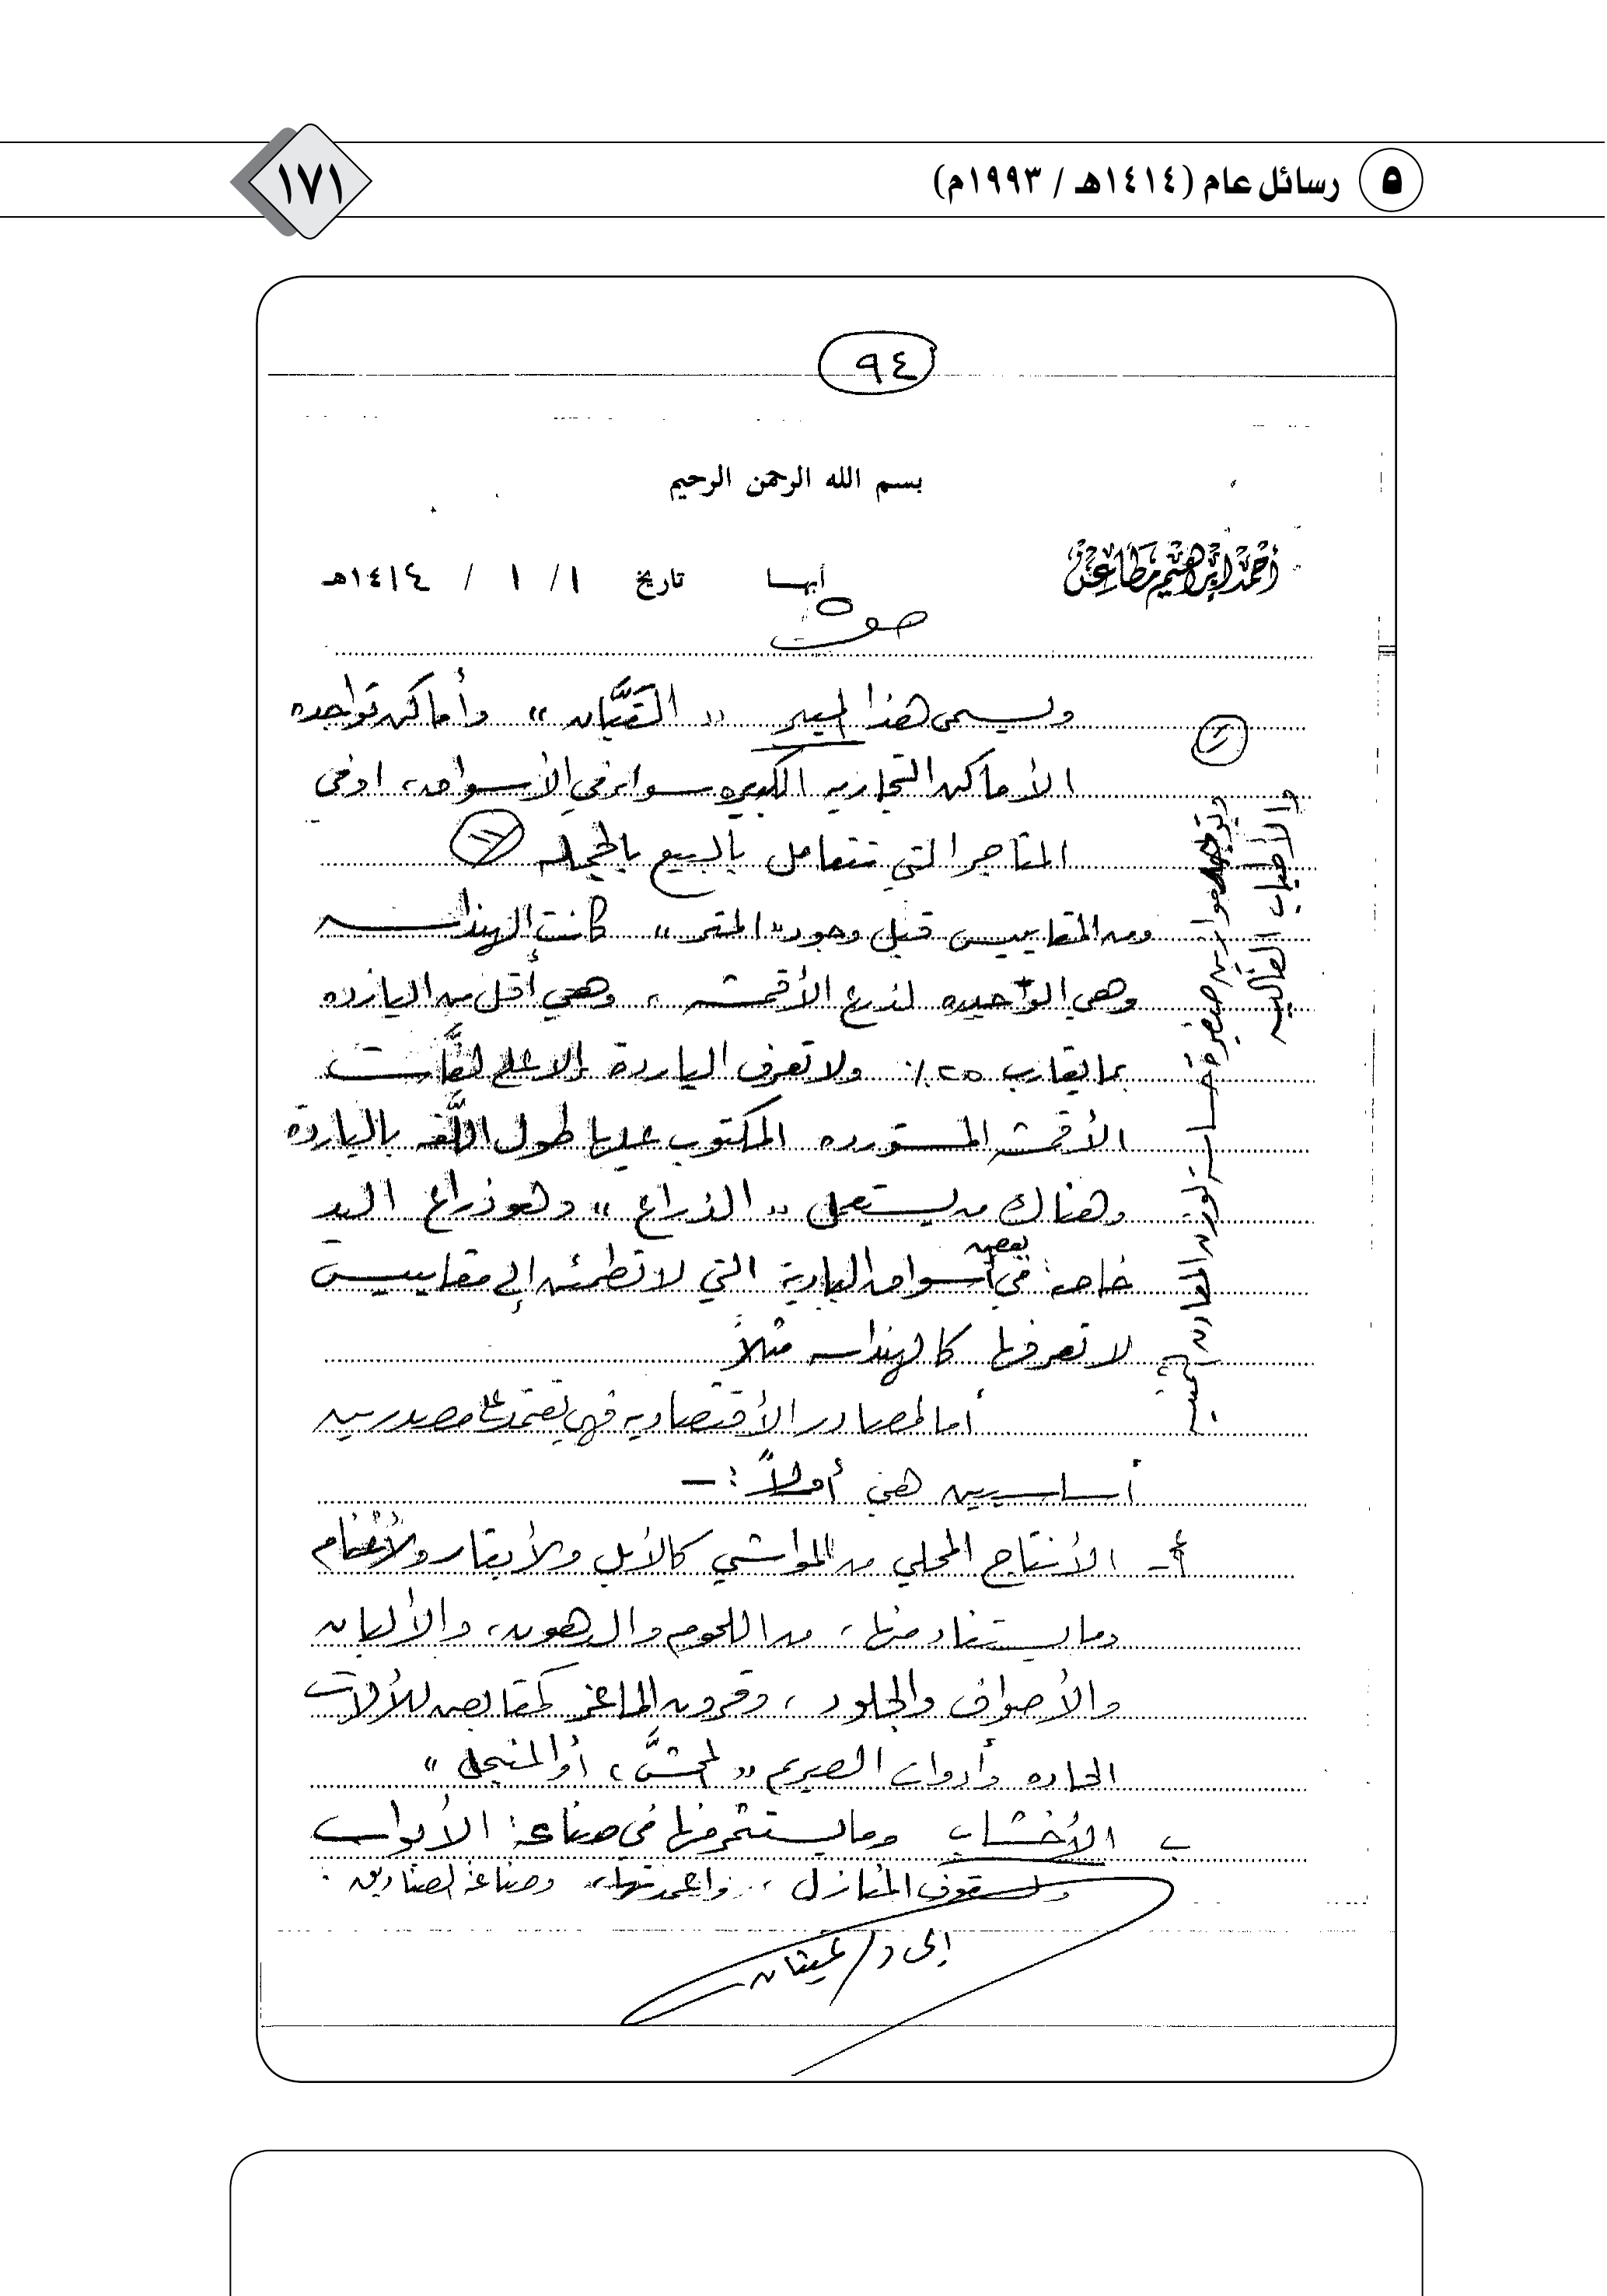 ٥ رسائل عام (١٤١٤هـ / ١٩٩٣م)
١٧١
٩٤
بسم الله الرحمن الرحيم
أحمد إبراهيم مطاعن
أبها تاريخ ١ / ١ / ١٤١٤هـ
ويسمى هذا « القبَّان » وأماكن تواجده
الأماكن التجاريه الكبيره سواء في الأسواق، او في
المتاجر التي تتعامل بالبيع بالجمله
ومن المقاييس قبل وجود «المتر» كانت الهنداسه
وهي الوحيده لذرع الأقمشه، وهي أقل من اليارده
بما يقارب ٢٥٪ ولا تعرف الياردة إلا على لفَّات
الأقمشه المستورده المكتوب عليها طول اللَّفه بالياردة
وهناك من يستعمل « الذراع » وهو ذراع اليد
خاصة في بعض أسواق البادية التي لا تطمئن إلى مقاييس
لا تعرفها كالهنداسه مثلاً
أما المصادر الأقتصاديه فهي تعتمد على مصدرين
أساسيين هي أولاً :ـ
أ ـ الأنتاج المحلي من المواشي كالأبل والأبقار والأغنام
وما يستفاد منها، من اللحوم والدهون، والألبان
والأصواف والجلود، وقرون الماعز كمقابض للألات
الحاده وأدوات الصريم « المحشَّ، أو المنجل »
ب الأخشاب وما يستثمر منها في صناعة الأبواب
وسقوف المنازل، واعمدتها، وصناعة الصناديق
إلى د/ غيثان
وتوجد موازين صغيرة حساسه لوزن المعادن الثمينه
والأطياب الغاليه